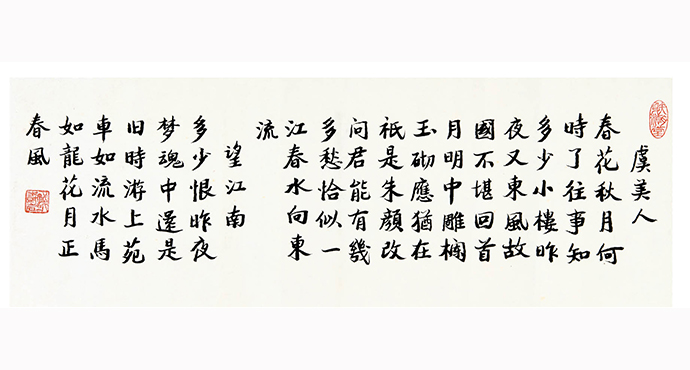 虞美人
春花秋月何
時了往事知
多少小樓昨
夜又東風故
國不堪回首
月明中雕欄
玉砌應猶在
祇是朱顏改
問君能有幾
多愁恰似一
江春水向東
流
望江南
多少恨昨夜
梦魂中還是
旧時游上苑
車如流水馬
如龍花月正
春風